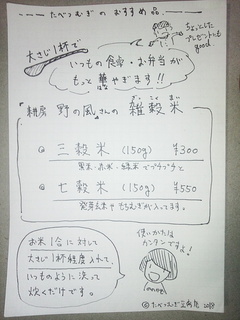 たべつむぎの おすすめ品
ちょっとした
プレゼントにも
good
大さじ1杯で
いつもの食卓・お弁当が
もっと華やぎます!!
耕房 野の風さんの 雑穀米
ざっこくまい
三穀米 (150g) ¥300
黒米・赤米・緑米でプチプチ
七穀米 (150g) ¥550
発芽玄米やもちむぎが入ってます。
お米1合に対して
大さじ1杯程度入れて、
いつものように洗って
炊くだけです。
使いかたは
カンタンですよ!